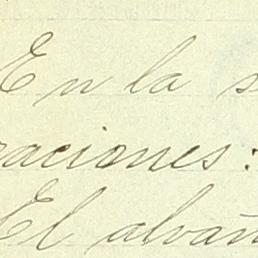 En la s
raciones:
El alvañ